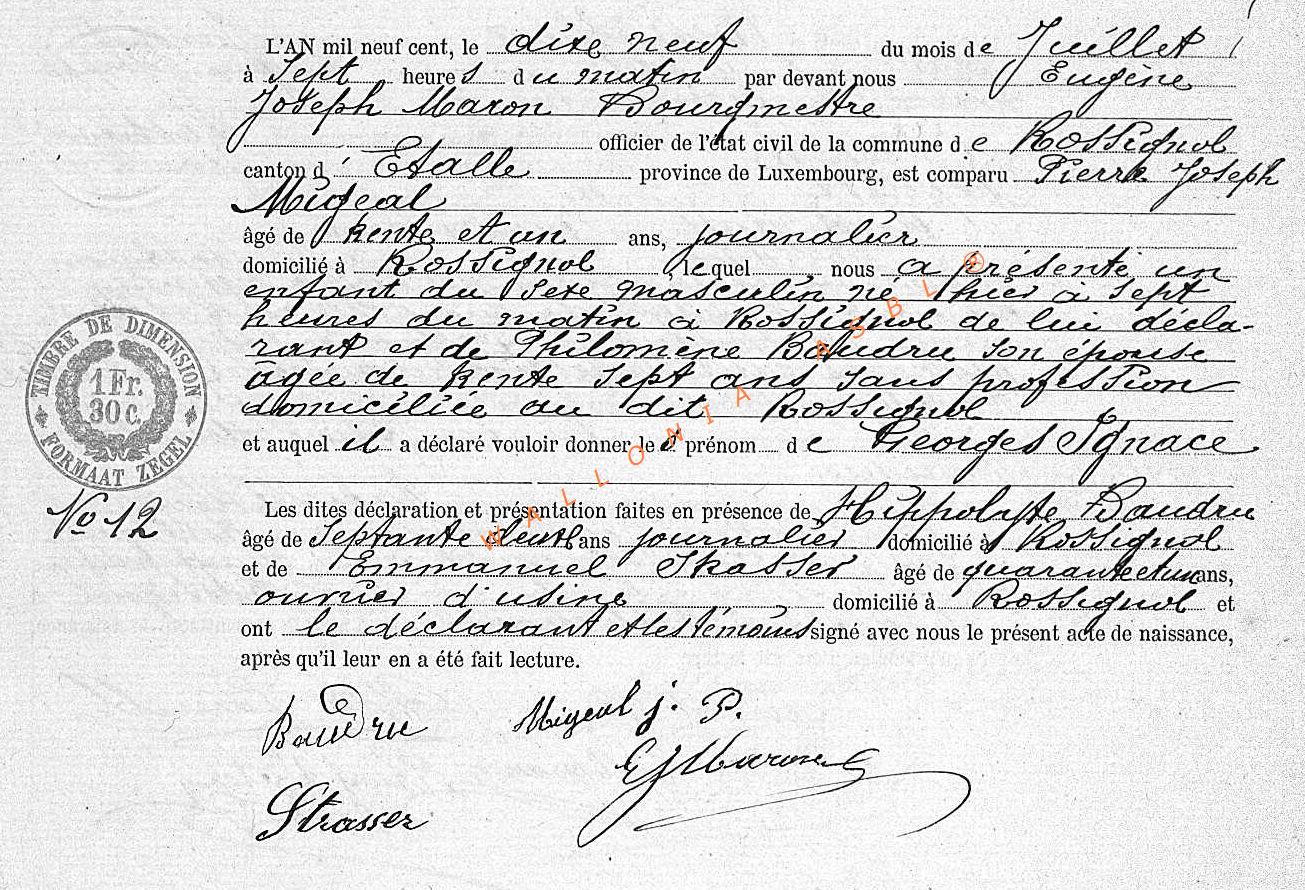 L'AN mil neuf cent, le dixe neuf du mois de Juillet
à Sept heures du matin par devant nous Eugène
Joseph Maron Bourgmestre
officier de l'état civil de la commune de Rossignol
canton d' Etalle province de Luxembourg, est comparu Pierre Joseph
Migeal
âgé de trente et un ans, journalier
domicilié à Rossignol, lequel nous a présenté un
enfant du sexe masculin né hier à sept
heures du matin à Rossignol de lui décla-
rant et de Philomène Baudru son épouse
agée de trente sept ans sans profession
domiciliée au dit Rossignol
et auquel il a déclaré vouloir donner les prénom de Georges Ignace
Les dites déclaration et présentation faites en présence de Hippolyte Baudru
âgé de septante ans journalier domicilié à Rossignol
et de Emmanuel Strasser âgé de quarante et un ans,
ouvrier d'usine domicilié à Rossignol et
ont le déclarant et les témoins signé avec nous le présent acte de naissance,
après qu'il leur en a été fait lecture.
TIMBRE DE DIMENSION
1 Fr.
30 c.
FORMAAT ZEGEL
No 12
Baudru Migeal j. P.
E J Maron
Strasser
WALLONIA ASBL ®